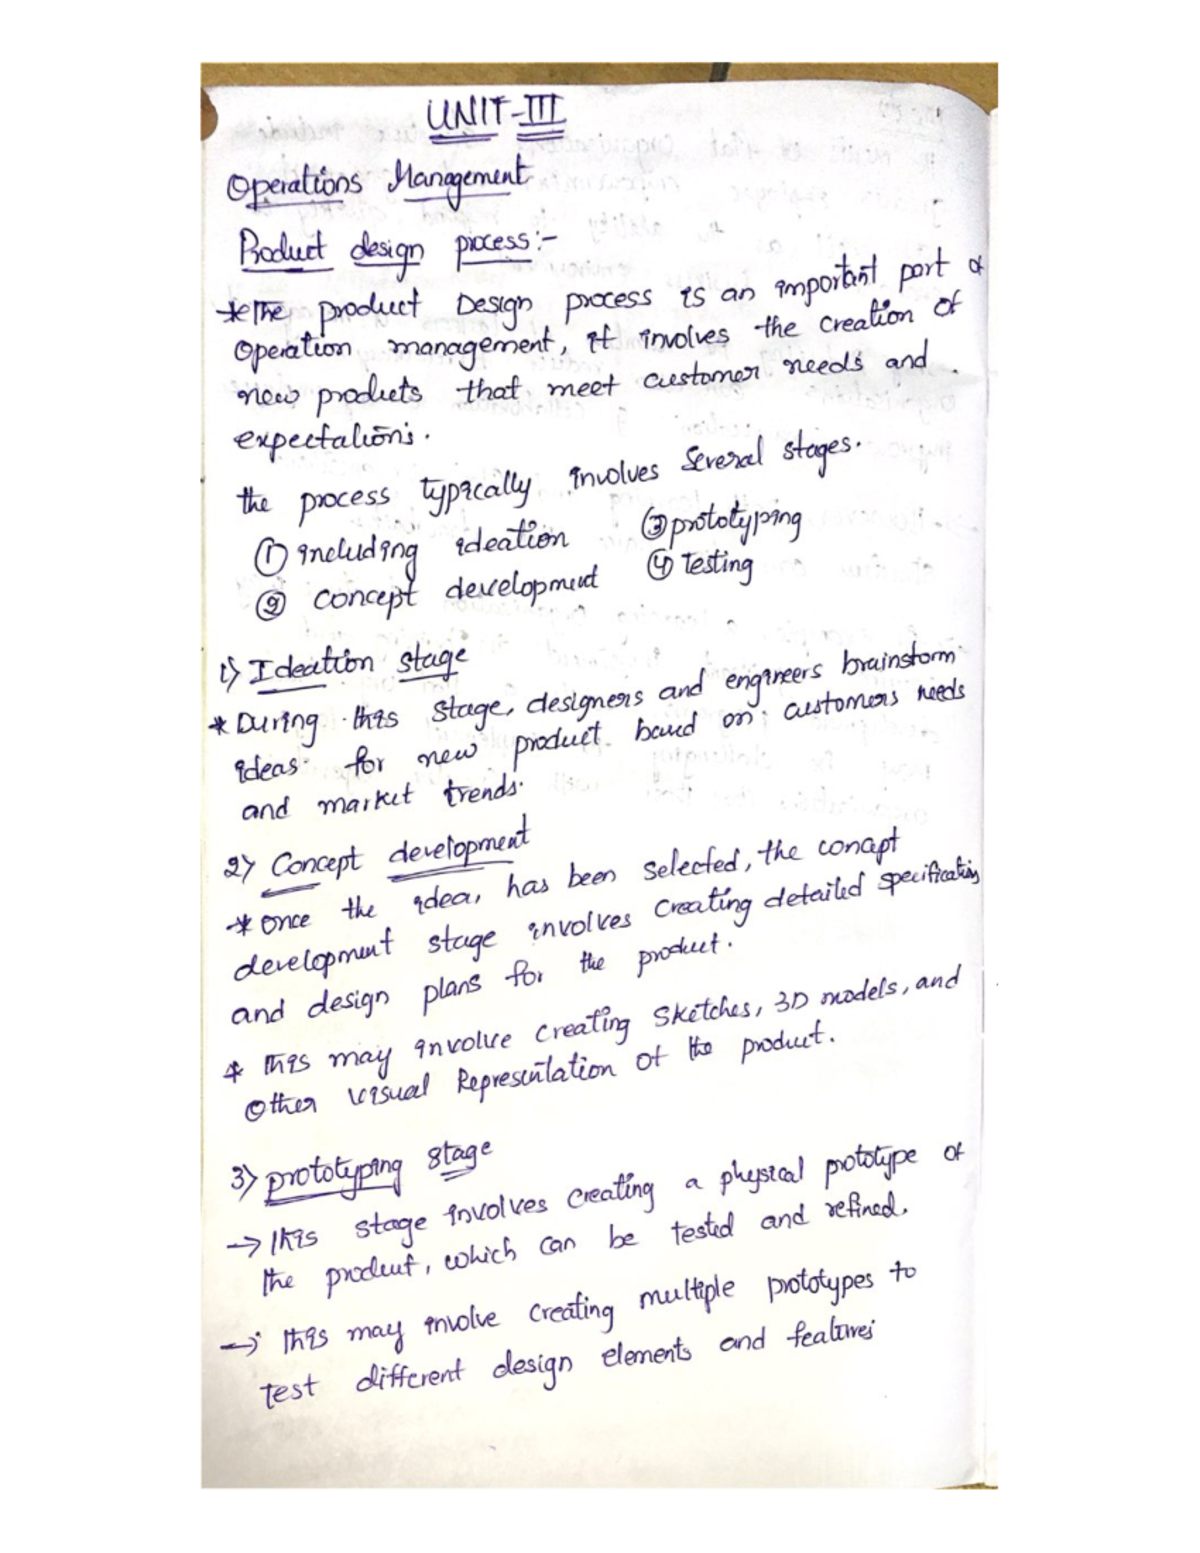 UNIT-III
Operations Management
Product design process:-
* The product Design process is an important part of
Operation management, it involves the creation of
new products that meet customer needs and
expectations.
the process typically involves Several stages.
① including ideation ③ prototyping
② concept development ④ Testing
1) Ideation stage
* During this stage, designers and engineers brainstorm
ideas for new product based on customers needs
and market trends.
2) Concept development
* Once the idea, has been selected, the concept
development stage involves creating detailed specification
and design plans for the product.
* This may involve creating sketches, 3D models, and
Other visual Representation of the product.
3) prototyping stage
→ This stage involves creating a physical prototype of
the product, which can be tested and refined.
→ This may involve creating multiple prototypes to
test different design elements and features